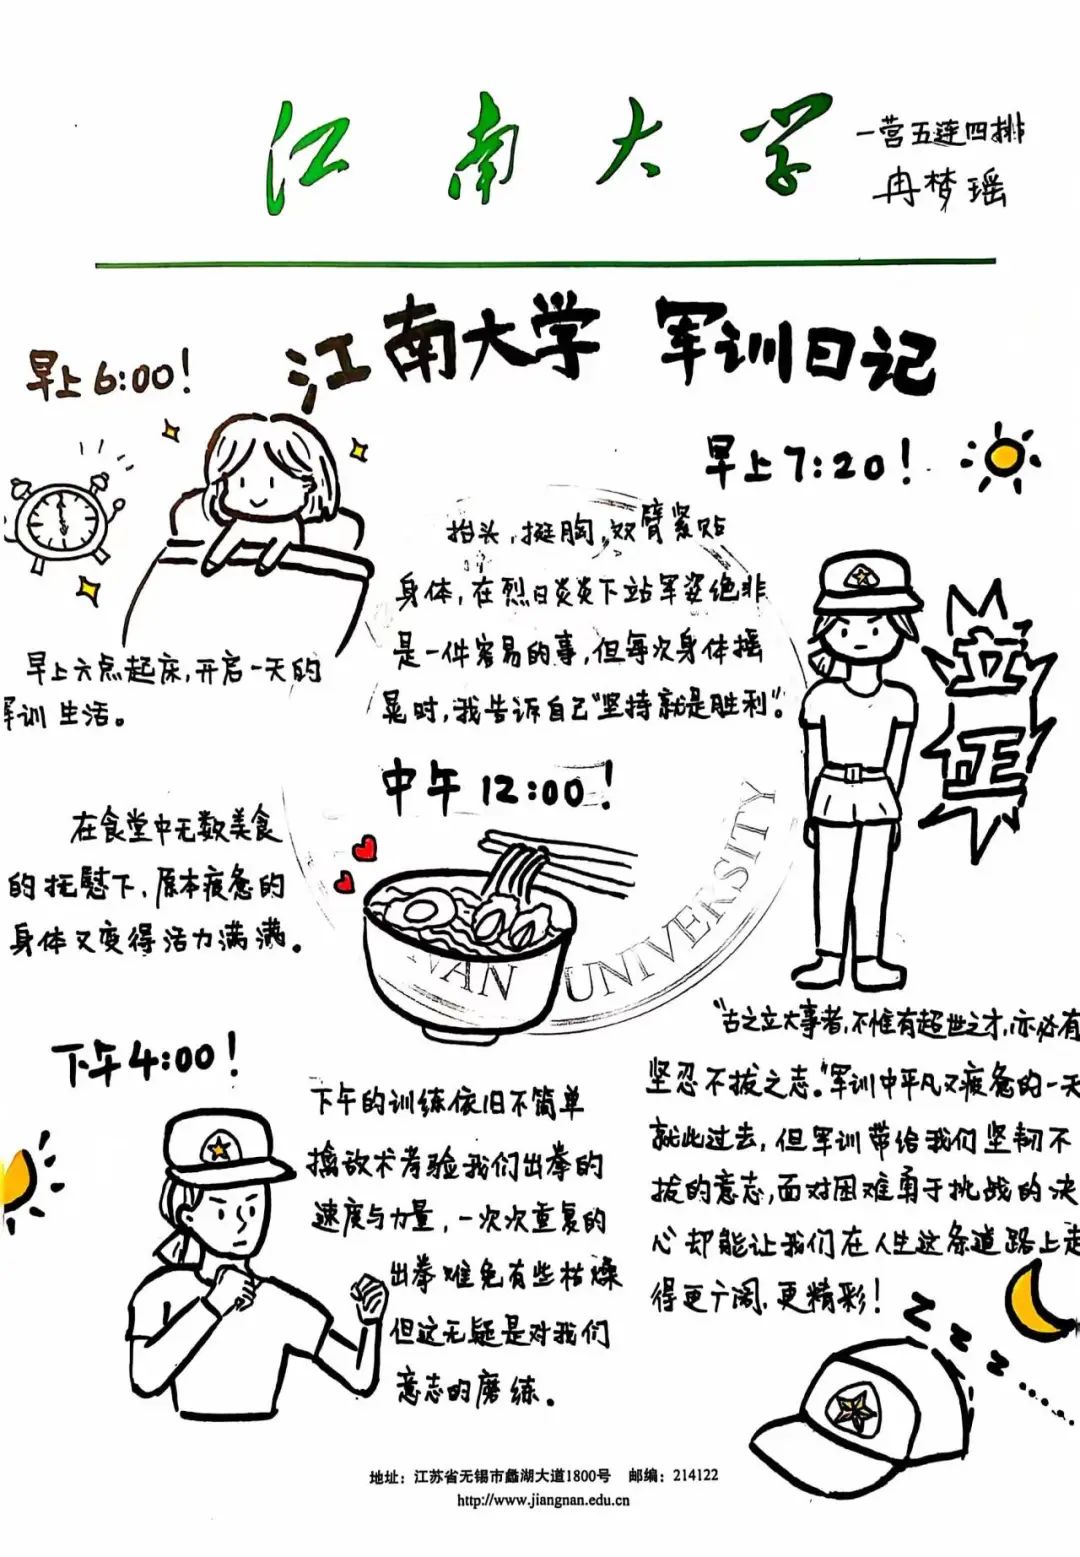 江南大学
一营五连四排
冉梦瑶
江南大学 军训日记
早上6:00!
早上六点起床,开启一天的
军训生活。
早上7:20!
抬头,挺胸,双臂紧贴
身体,在烈日炎炎下站军姿绝非
是一件容易的事,但每次身体摇
晃时,我告诉自己"坚持就是胜利"。
立正
中午12:00!
在食堂中无数美食
的托慰下,原本疲惫的
身体又变得活力满满。
NAN UNIVERSITY
下午4:00!
下午的训练依旧不简单
擒敌术考验我们出拳的
速度与力量,一次次重复的
出拳难免有些枯燥
但这无疑是对我们
意志的磨练。
"古之立大事者,不惟有超世之才,亦必有
坚忍不拔之志。"军训中平凡又疲惫的一天
就此过去,但军训带给我们坚韧不
拔的意志,面对困难勇于挑战的决
心却能让我们在人生这条道路上走
得更广阔,更精彩!
Z Z Z Z
地址:江苏省无锡市蠡湖大道1800号 邮编:214122
http://www.jiangnan.edu.cn